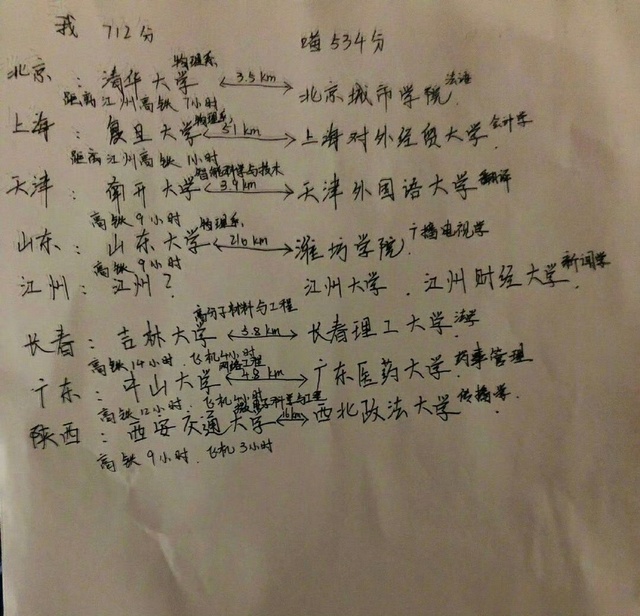 我 712分 喵534分
北京：清华大学 物理系 3.5km 北京城市学院
距离江州高铁7小时
上海：复旦大学 物理系 51km 上海对外经贸大学 会计学
距离江州高铁1小时
天津：南开大学 智能科学与技术 3.9km 天津外国语大学 翻译
高铁9小时
山东：山东大学 物理系 216km 潍坊学院 广播电视学
高铁9小时
江州：江州？ 江州大学．江州财经大学 新闻学
长春：吉林大学 高分子材料与工程 3.8km 长春理工大学
高铁14小时．飞机4小时
广东：中山大学 网络工程 48km 广东医药大学 药事管理
高铁12小时．飞机
陕西：西安交通大学 16km 西北政法大学 传播学
高铁9小时．飞机3小时